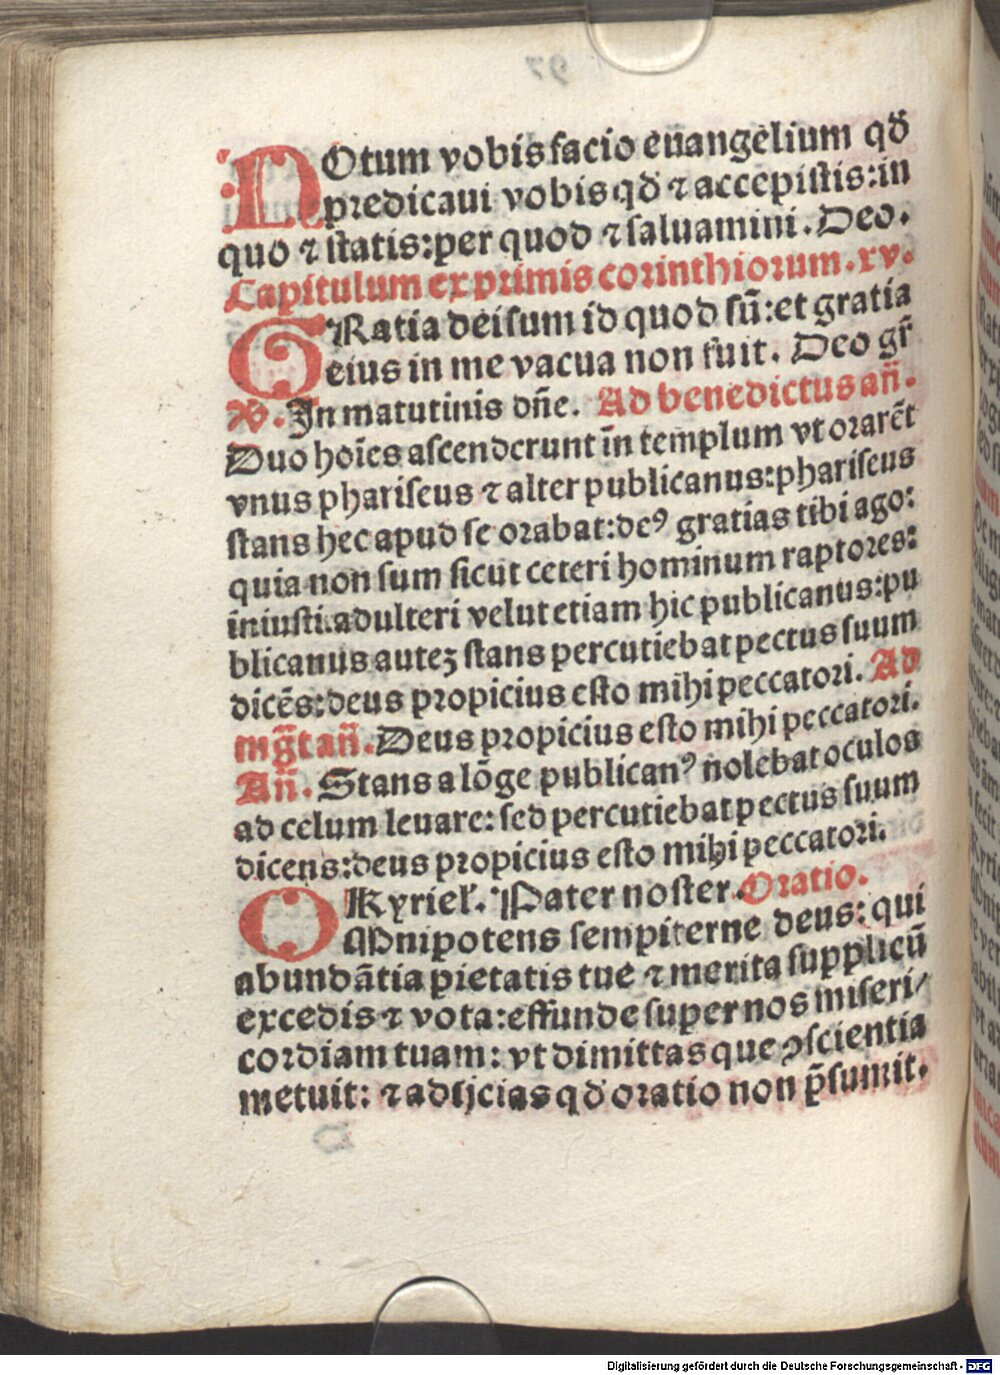 NOtum vobis facio euangelium qď
predicaui vobis qď ⁊ accepistis: in
quo ⁊ statis: per quod ⁊ saluamini. Deo.
Capitulum ex primis corinthiorum. xv.
GRatia dei sum id quod sū: et gratia
eius in me vacua non fuit. Deo gr̄
℣. In matutinis dn̄e. Ad benedictus an̄.
Duo hoīes ascenderunt īn templum vt orarēt
vnus phariseus ⁊ alter publicanus: phariseus
stans hec apud se orabat: deꝰ gratias tibi ago:
quia non sum sicut ceteri hominum raptores:
iniusti. adulteri velut etiam hic publicanus: pu
blicanus auteʒ stans percutiebat pectus suum
dicēs: deus propicius esto mihi peccatori. Ad
mḡt an̄. Deus propicius esto mihi peccatori.
An̄. Stans a lōge publicanꝰ nolebat oculos
ad celum leuare: sed percutiebat pectus suum
dicens: deus propicius esto mihi peccatori.
Kyriel̓. Pater noster. Oratio.
OMnipotens sempiterne deus: qui
abundātia pietatis tue ⁊ merita supplicū
excedis ⁊ vota: effunde super nos miseri/
cordiam tuam: vt dimittas que ꝯscientia
metuit: ⁊ adijcias qď oratio non p̄sumit.
Digitalisierung gefördert durch die Deutsche Forschungsgemeinschaft - DFG